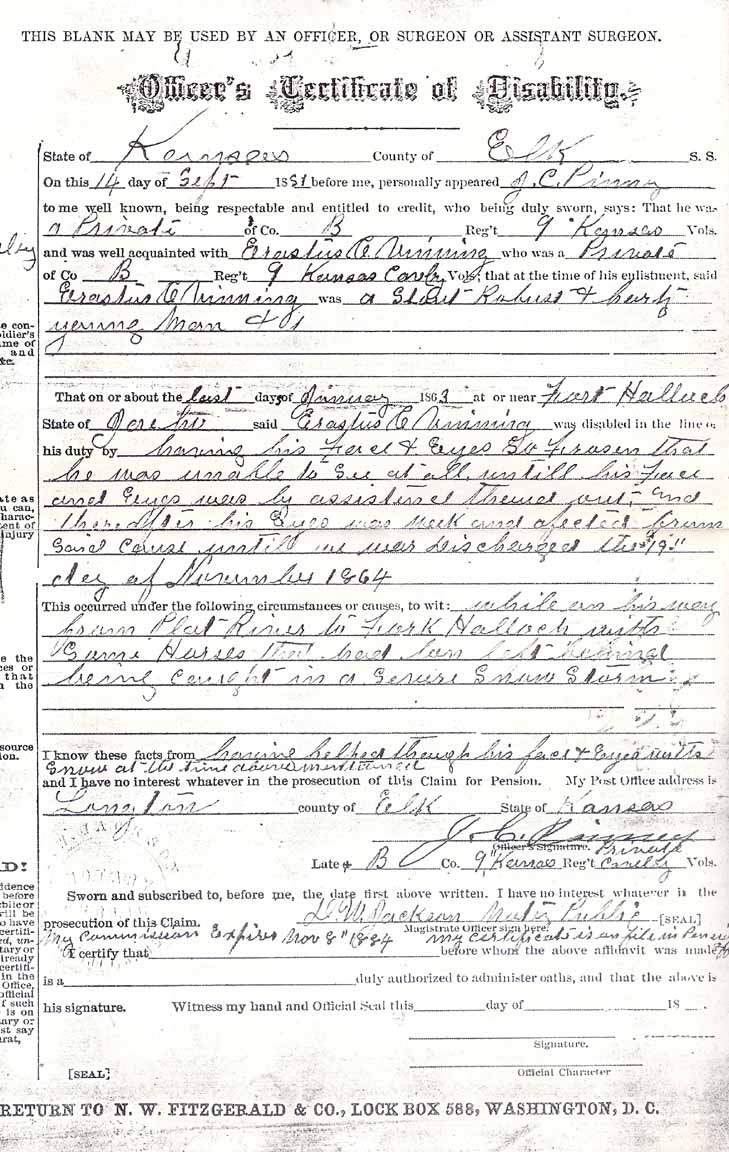 THIS BLANK MAY BE USED BY AN OFFICER, OR SURGEON OR ASSISTANT SURGEON.
Officer's Certificate of Disability.
State of Kansas County of Elk S. S.
On this 14 day of Sept 1881 before me, personally appeared J. C. Pinney
to me well known, being respectable and entitled to credit, who being duly sworn, says: That he was
a Private of Co. B Reg't 9" Kansas Vols.
and was well acquainted with Erastus C Vinning who was a Private
of Co B Reg't 9 Kansas Cavelry Vols, that at the time of his enlistment, said
Erastus C Vinning was a Stout Robust & harty
young man
That on or about the last days of Jinuary 1863 at or near Fort Halleck
State of said Erastus C Vinning was disabled in the line of
his duty by having his Face & Eyes So Frosen that
he was unable to See at all untill his Face
and Eyes was by assistence thawed out, and
thereafter his Eyes was weak and afected from
Said Cause until he was Discharged the 19"
day of November 1864
This occurred under the following circumstances or causes, to wit: while on his way
from Plat River to Fort Halleck with
Some Horses that had ben left behind
being Caught in a Severe Snow Storm
I know these facts from haveing helped though his face & Eyes with
Snow at the time above mentioned
and I have no interest whatever in the prosecution of this Claim for Pension. My Post Office address is
Longton county of Elk State of Kansas
J. C. Pinney
Officer's Signature. Private
Late of B Co. 9" Kansas Reg't Cavelry Vols.
Sworn and subscribed to, before me, the date first above written. I have no interest whatever in the
prosecution of this Claim. D. W. Jackson Notary Public [SEAL]
Magistrate Officer sign here.
My Commission Expires Nov 8" 1884 my certificate is on file in
I certify that before whom the above affidavit was made
is a duly authorized to administer oaths, and that the above is
his signature. Witness my hand and Official Seal this day of 18
Signature.
[SEAL] Official Character
RETURN TO N. W. FITZGERALD & CO., LOCK BOX 588, WASHINGTON, D. C.